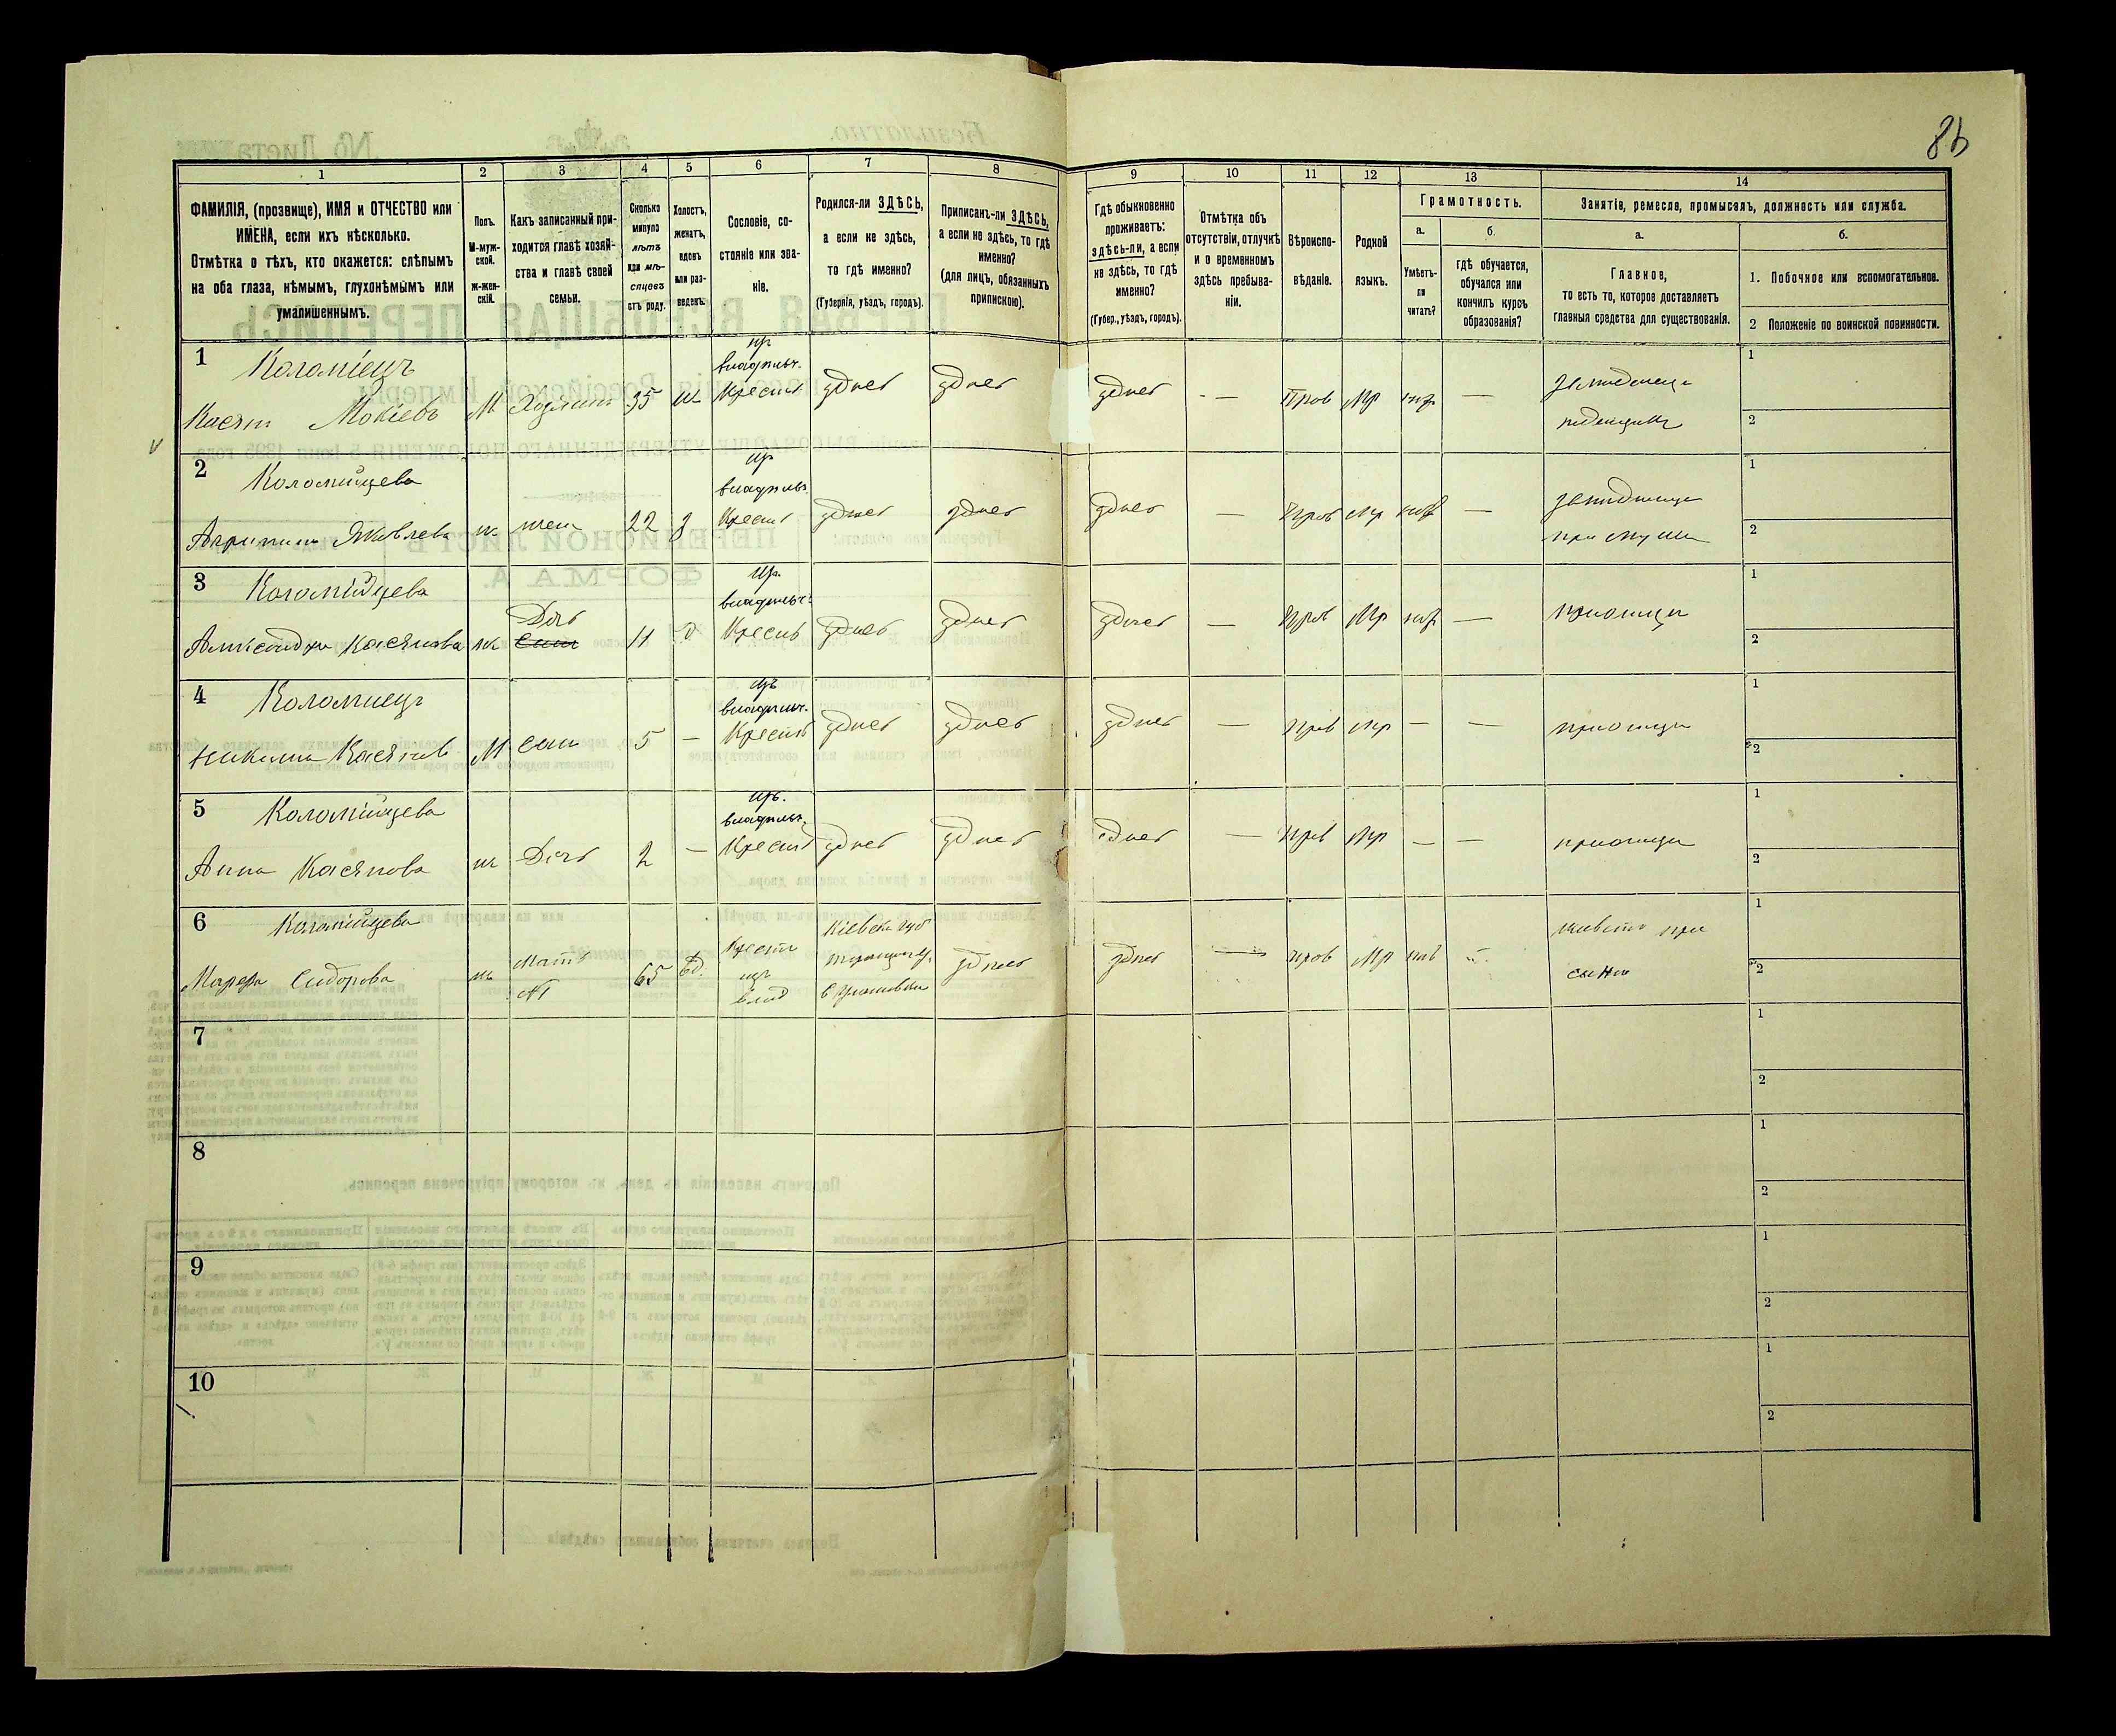 86
1
2
3
4
5
6
7
8
9
10
11
12
13
14
ФАМИЛІЯ, (прозвище), ИМЯ и ОТЧЕСТВО или
ИМЕНА, если ихъ нѣсколько.
Отмѣтка о тѣхъ, кто окажется: слѣпымъ
на оба глаза, нѣмымъ, глухонѣмымъ или
умалишеннымъ.
Полъ.
М-муж-
ской.
Ж-жен-
скій.
Какъ записанный при-
ходится главѣ хозяй-
ства и главѣ своей
семьи.
Сколько
минуло
лѣтъ
или мѣ-
сяцевъ
отъ роду.
Холостъ,
женатъ,
вдовъ
или раз-
веденъ.
Сословіе, со-
стояніе или зва-
ніе.
Родился-ли ЗДѢСЬ,
а если не здѣсь,
то гдѣ именно?
(Губернія, уѣздъ, городъ).
Приписанъ-ли ЗДѢСЬ,
а если не здѣсь, то гдѣ
именно?
(для лицъ, обязанныхъ
припискою).
Гдѣ обыкновенно
проживаетъ:
здѣсь-ли, а если
не здѣсь, то гдѣ
именно?
(Губер., уѣздъ, городъ).
Отмѣтка объ
отсутствіи, отлучкѣ
и о временномъ
здѣсь пребыва-
ніи.
Вѣроиспо-
вѣданіе.
Родной
языкъ.
Грамотность.
а.
Умѣетъ-
ли
читать?
б.
гдѣ обучается,
обучался или
кончилъ курсъ
образованія?
Занятіе, ремесло, промыселъ, должность или служба.
а.
Главное,
то есть то, которое доставляетъ
главныя средства для существованія.
б.
1. Побочное или вспомогательное.
2 Положеніе по воинской повинности.
1
Коломіецъ
Касян Мокіевъ М Хозяин 35 ж
Крестъ зднсь зднсь зднсь - — Пров Мр —
1
2
2
Коломийцева
Яковлева ж жен 22 з
Крестъ зднсь зднсь зднсь — Пров Мр —
1
2
3
Коломійцева
Дочь
Александра Касянова ж Сын 11 д
Крестъ зднсь зднсь зднсь — Пров Мр —
1
2
4
Коломиецъ
Никита Касянов М сын 5 —
Крестъ зднсь зднсь зднсь — Прв Мр — —
1
2
5
Коломійцева
Анна Касянова ж Дочь 2 —
Крестъ зднсь зднсь зднсь — Прв Мр — —
1
2
6
Коломійцева
Сидорова ж мать №1 65 вд.
Крестъ
влад
Кіевск губ
зднсь зднсь — пров Мр —
при
сыни
1
2
7
1
2
8
1
2
9
1
2
10
1
2